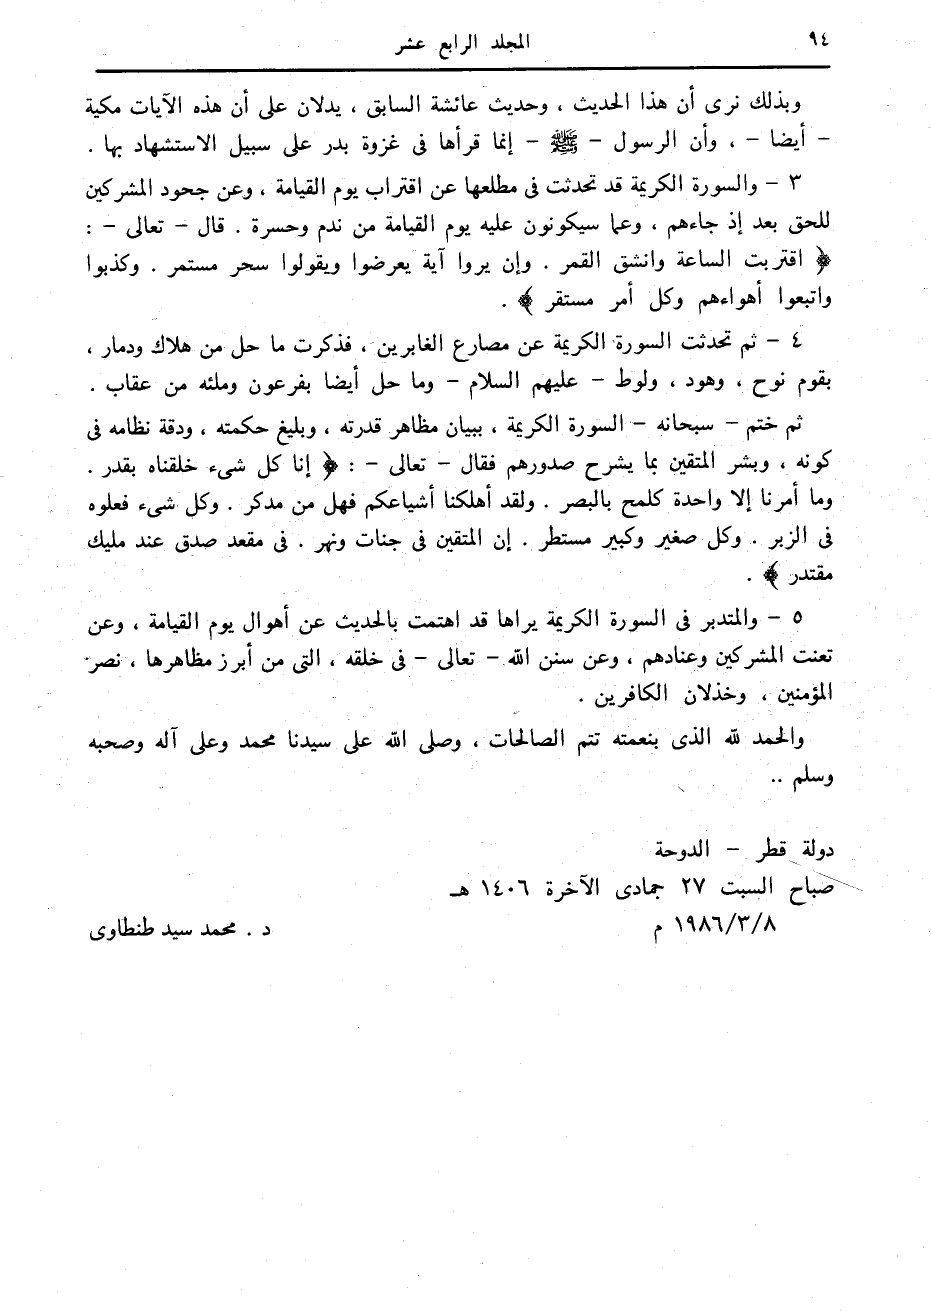 ٩٤
المجلد الرابع عشر
وبذلك نرى أن هذا الحديث ، وحديث عائشة السابق ، يدلان على أن هذه الآيات مكية
– أيضا – ، وأن الرسول – ﷺ – إنما قرأها فى غزوة بدر على سبيل الاستشهاد بها .
٣ – والسورة الكريمة قد تحدثت فى مطلعها عن اقتراب يوم القيامة ، وعن جحود المشركين
للحق بعد إذ جاءهم ، وعما سيكونون عليه يوم القيامة من ندم وحسرة . قال – تعالى – :
﴿ اقتربت الساعة وانشق القمر . وإن يروا آية يعرضوا ويقولوا سحر مستمر . وكذبوا
واتبعوا أهواءهم وكل أمر مستقر ﴾ .
٤ – ثم تحدثت السورة الكريمة عن مصارع الغابرين ، فذكرت ما حل من هلاك ودمار ،
بقوم نوح ، وهود ، ولوط – عليهم السلام – وما حل أيضا بفرعون وملئه من عقاب .
ثم ختم – سبحانه – السورة الكريمة ، ببيان مظاهر قدرته ، وبليغ حكمته ، ودقة نظامه فى
كونه ، وبشر المتقين بما يشرح صدورهم فقال – تعالى – : ﴿ إنا كل شىء خلقناه بقدر .
وما أمرنا إلا واحدة كلمح بالبصر . ولقد أهلكنا أشياعكم فهل من مدكر . وكل شىء فعلوه
فى الزبر . وكل صغير وكبير مستطر . إن المتقين فى جنات ونهر . فى مقعد صدق عند مليك
مقتدر ﴾ .
٥ – والمتدبر فى السورة الكريمة يراها قد اهتمت بالحديث عن أهوال يوم القيامة ، وعن
تعنت المشركين وعنادهم ، وعن سنن الله – تعالى – فى خلقه ، التى من أبرز مظاهرها ، نصر
المؤمنين ، وخذلان الكافرين .
والحمد لله الذى بنعمته تتم الصالحات ، وصلى الله على سيدنا محمد وعلى آله وصحبه
وسلم ..
دولة قطر – الدوحة
صباح السبت ٢٧ جمادى الآخرة ١٤٠٦ هـ
١٩٨٦/٣/٨ م
د . محمد سيد طنطاوى